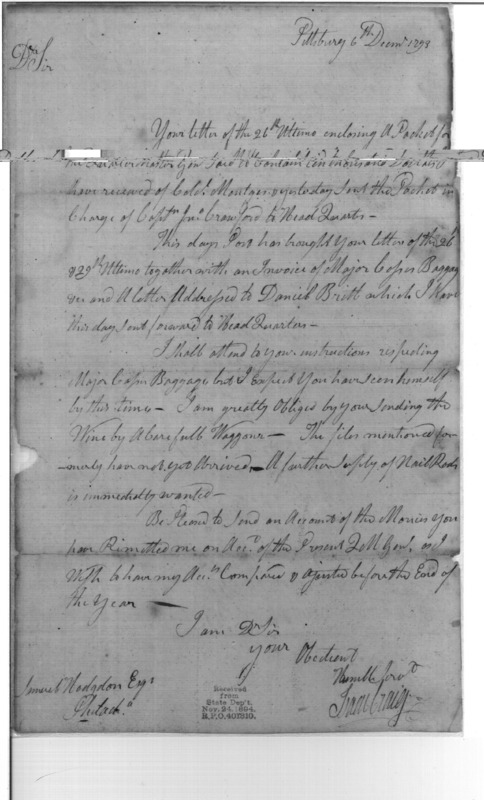 Pittsburg 6th Decmr 1793
Dr Sir
Your letter of the 26th Ultimo enclosing A Packet for
the Qr Master Genl Said to Contain One thousand Dollars
have received of Colo. Mentges & yesterday Sent the Packet in
Charge of Captn Jno. Crawford to Head Quarts —
This days Post has bought Your letter of the 26
& 29th Ultimo together with an Invoice of Major Casses Baggag
&c and A letter Addressed to Daniel Britt which I have
this day sent forward to Head Quarters —
I shall attend to your instructions respecting
Major Casses Baggage but I Expect You have seen himself
by this time — I am greatly Obliged by your Sending the
Wine by A Carefull Waggoner — The files mentioned for-
-merly have not yet Arrived — A further Suply of Nail Rods
is immediatly wanted —
Be Pleasd to Send an Account of the Monies You
have Rimetted me on Acct. of the Present QrMr Genl. as I
Wish to have my Acts. Compared & ajusted before the End of
the Year
I am Dr Sir
your
Obedient
Humble Servt
Isaac Craig
Samuel Hodgdon Esqr
Philada.
Received
from
State Dep't.
Nov. 24. 1894.
R.P.O, 401310.